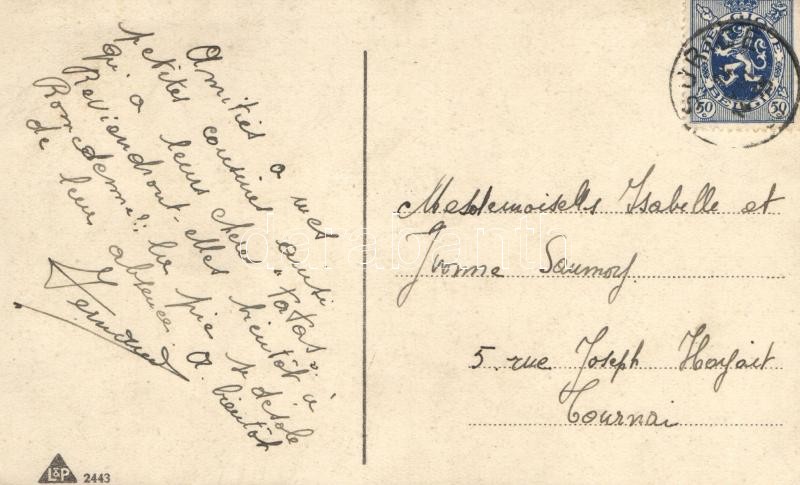 Amitiés à mes
petites cousines ainsi
qu'à leurs chers "tatas".
Reviendront-elles bientôt à
Romedenne? La pie se désole
de leur absence. A bientôt
Fernand
Mesdemoiselles Isabelle et
Yvonne Saumoy
5. rue Joseph Hoyois
Tournai
BELGIQUE
BELGIE
50 50
L&P 2443
darabanth